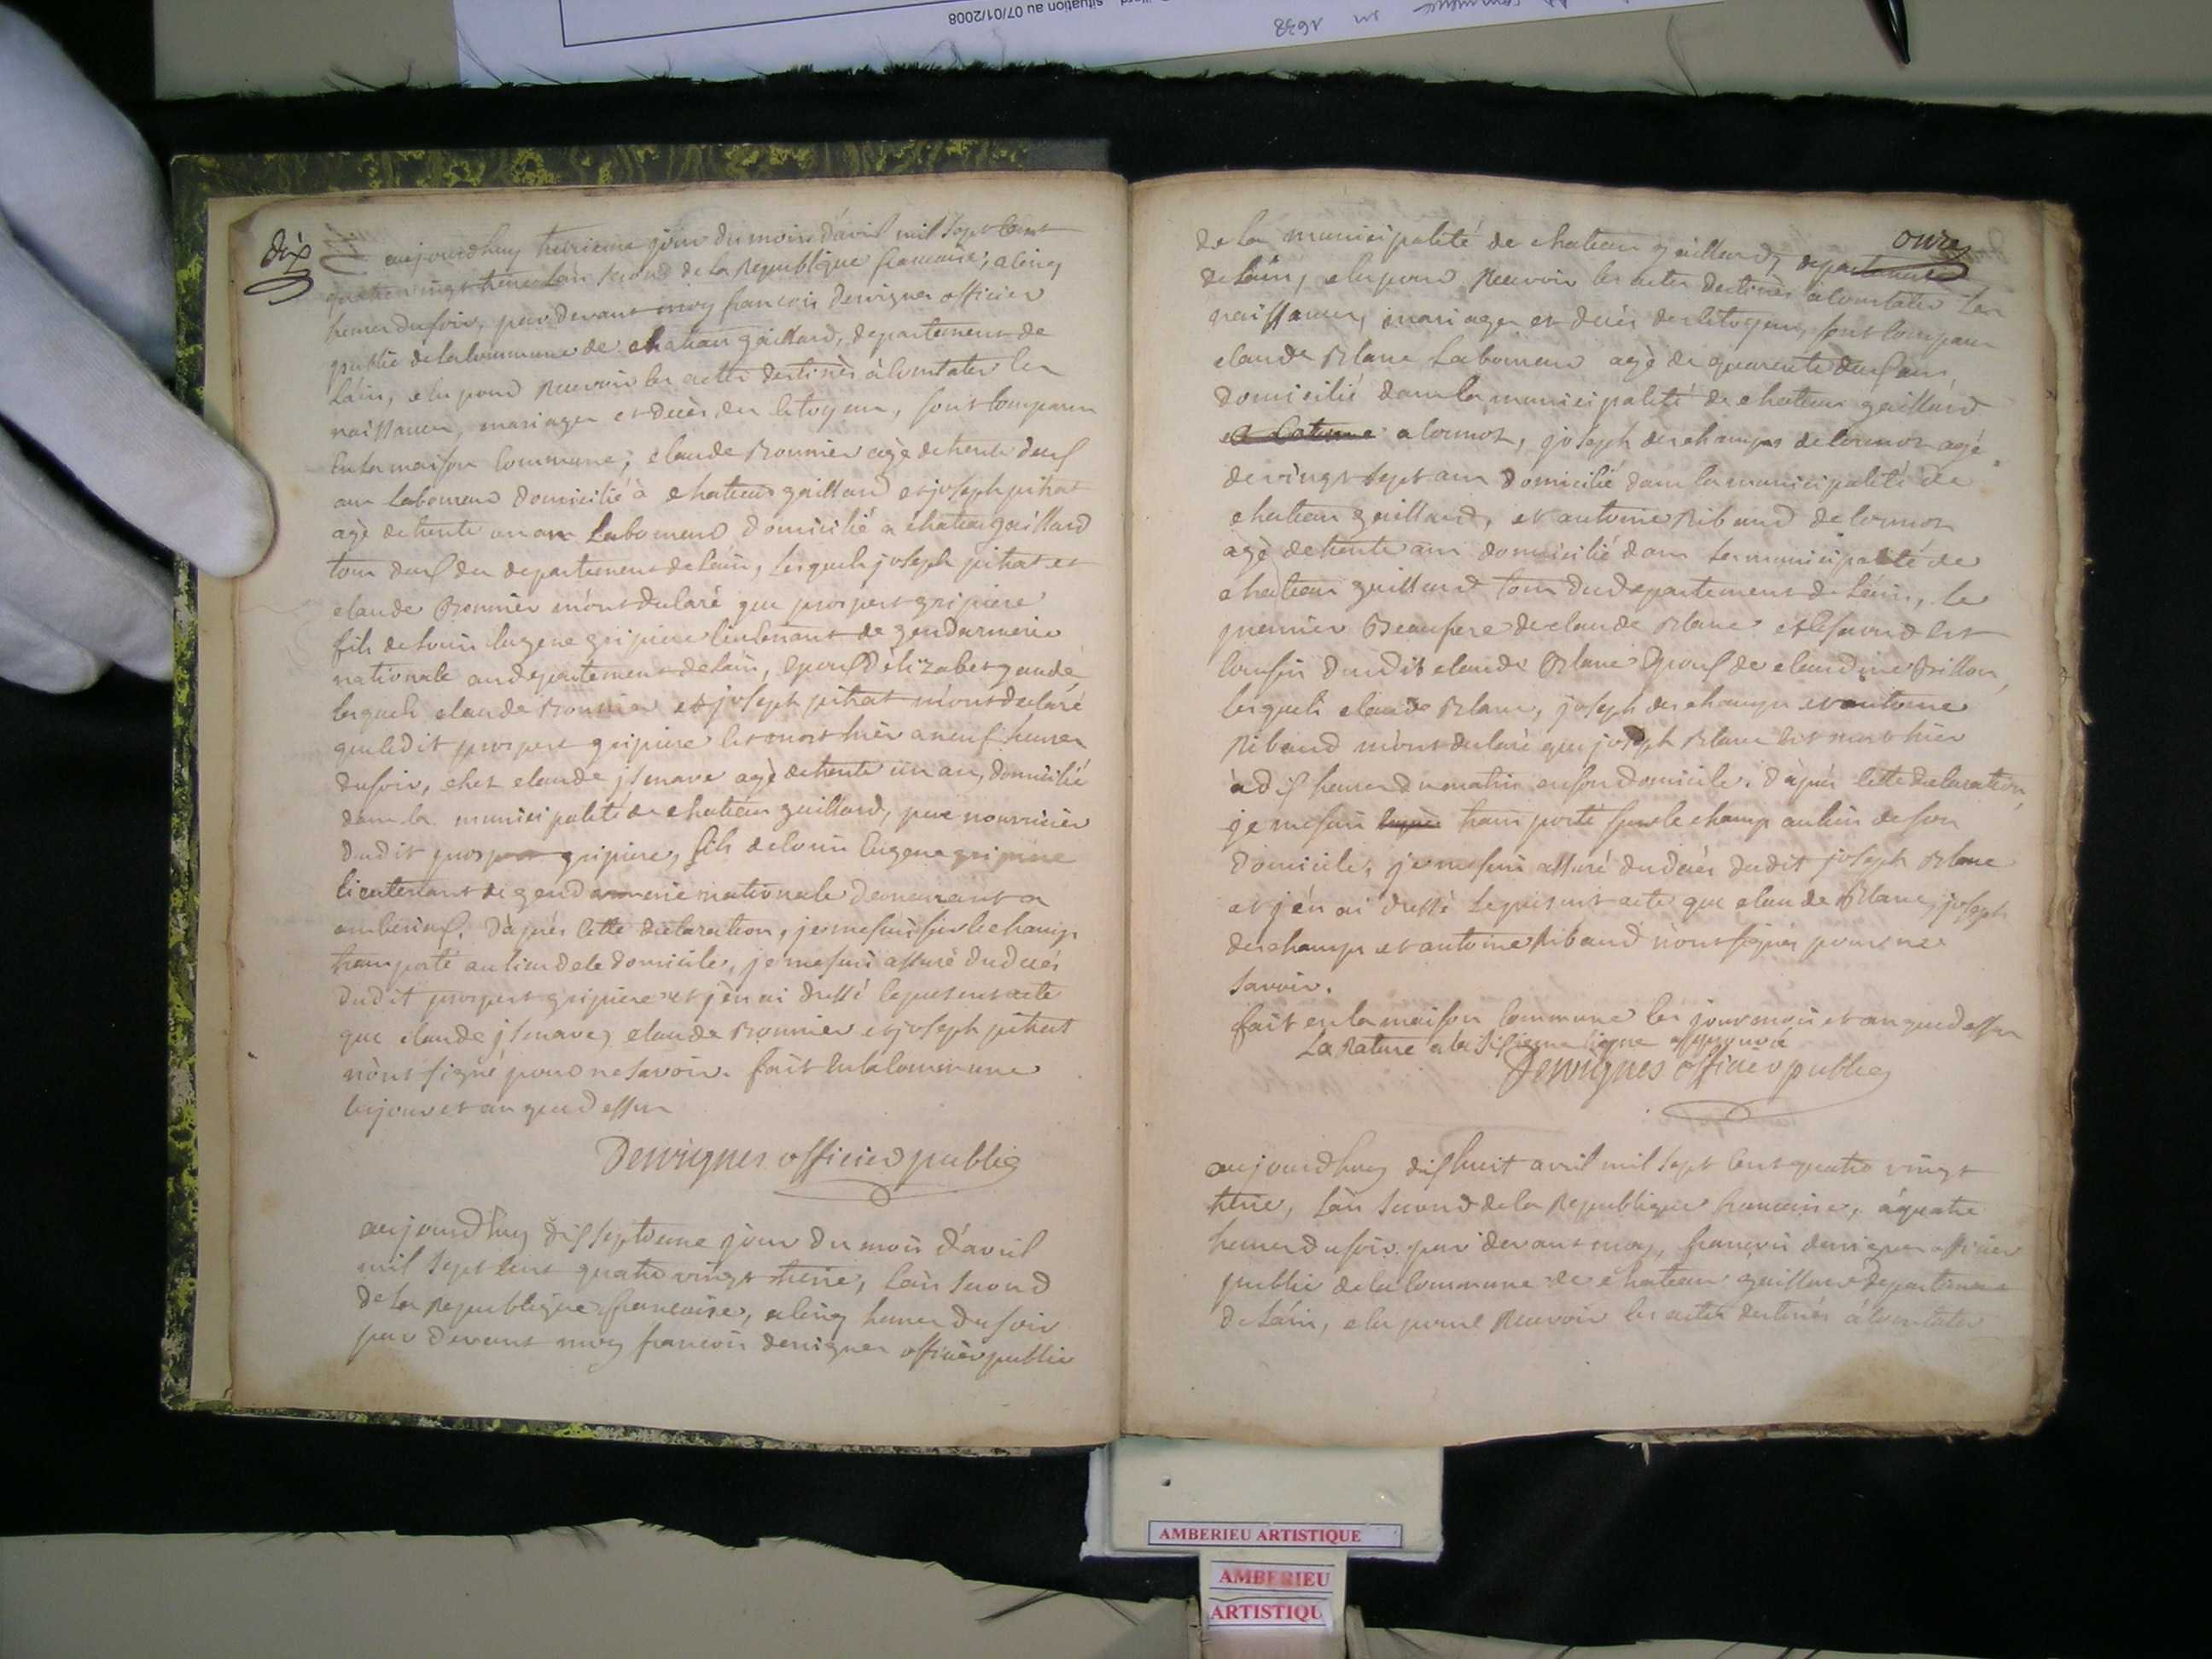 situation au 07/01/2008
1638
dix
aujourdhuy treizieme jour du mois d'avril mil sept cent
quatre vingt treize L'an second de la Republique francaise, a cinq
heures du soir, par devant moy francois Dervignes officier
public de la commune de chateau gaillard, departement de
L'ain, elu pour recevoir les actes destinés à constater les
naissances, mariages et decès des citoyens, sont comparu
en la maison commune, claude Bonnier agé de trente deux
ans laboureur domicilié à chateau gaillard et joseph pitrat
agè de trente un an laboureur domicilié a chateau gaillard
tous deux du departement de lain, lesquels joseph pitrat et
claude Bonnier m'ont declaré que prospert gripiere
fils de louis Eugene gripiere lieutenant de gendarmerie
nationale au departement de lain, Epoux d'elizabet gaudé
lesquels claude Bonnier et joseph pitrat m'ont declaré
que ledit prospert gripiere est mort hier a neuf heures
du soir, chez claude jsnave agè de trente un an, domicilié
dans la municipalité de chateau gaillard, pere nourricier
dudit prospert gripiere, fils de louis Eugene gripiere
lieutenant de gendarmerie nationale demeurant a
amberieux. D'après cette declaration, je me suis sur le champ
transporté au lieu de le domicile, je me suis assuré du decés
dudit prospert gripiere et j'en ai dressé le present acte
que claude jsnave, claude Bonnier et joseph pitrat
n'ont signé pour ne savoir. fait en la commune
les jour et an que dessus
Dervignes officier public
aujourdhuy dix septieme jour du mois d'avril
mil sept cent quatre vingt treize, L'an second
de la Republique francaise, a cinq heures du soir
par devant moy francois dervignes officier public
onze
de la municipalité de chateau gaillard, departement
de l'ain, elu pour recevoir les actes destinés à constater les
naissances, mariages et decés des citoyens, sont comparu
claude Blanc Laboureur agè de quarente deux ans
domicilié dans la municipalité de chateau gaillard
a cormoz, joseph deschamps de cormoz agé
de vingt sept ans domicilié dans la municipalité de
chateau gaillard, et antoine Ribaud de cormoz
agè de trente ans domicilié dans la municipalité de
chateau gaillard tous du departement de L'ain, le
premier Beaufrere de claude Blanc et le second est
cousin dudit claude Blanc Epoux de claudine Brillon,
lesquels claude Blanc, joseph deschamps et antoine
Ribaud m'ont declaré que joseph Blanc est mort hier
à dix heures du matin en son domicile. D'après cette declaration,
je me suis transporté sur le champ au lieu de son
domicile, je me suis assuré du decés dudit joseph Blanc
et j'en ai dressé le present acte que claude Blanc, joseph
deschamps et antoine Ribaud n'ont signés pour ne
savoir.
fait en la maison commune les jour mois et an que dessus
La Rature a la sixieme ligne approuvée
Dervignes officier public
aujourdhuy dix huit avril mil sept cent quatre vingt
treize, L'an second de la Republique francaise, à quatre
heures du soir par devant moy, francois dervignes officier
public de la commune de chateau gaillard departement
de L'ain, elu pour recevoir les actes destinés à constater
AMBERIEU ARTISTIQUE
AMBERIEU
ARTISTIQU